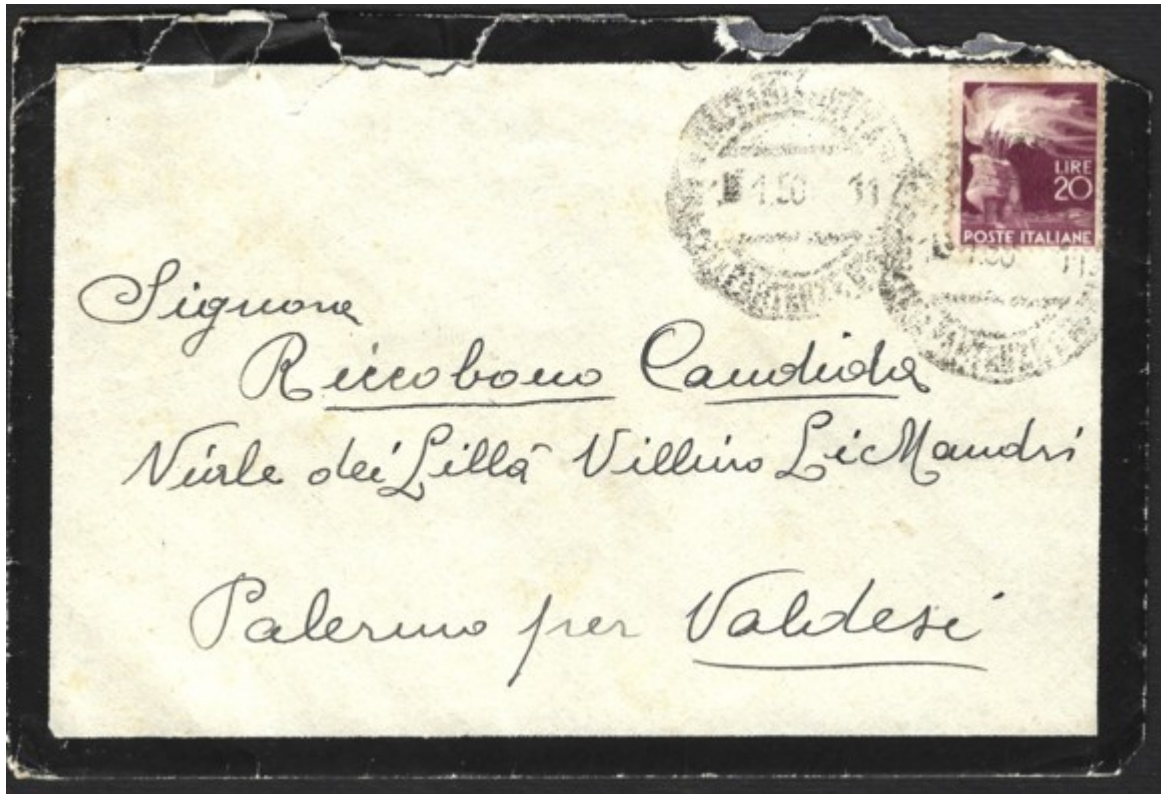 1.50 11
LIRE
20
POSTE ITALIANE
Signora
Riccobono Candida
Viale dei Lillà Villino Li Mandri
Palermo per Valdesi